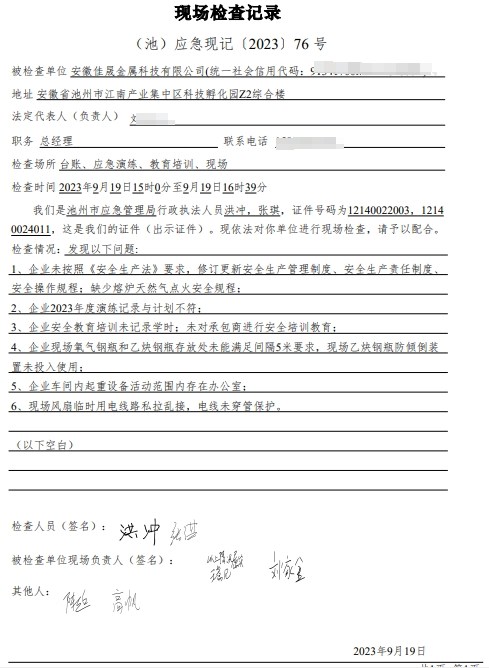 现场检查记录
（池）应急现记〔2023〕76 号
被检查单位 安徽佳晟金属科技有限公司(统一社会信用代码:
地址 安徽省池州市江南产业集中区科技孵化园Z2综合楼
法定代表人（负责人）
职务 总经理 联系电话
检查场所 台账、应急演练、教育培训、现场
检查时间 2023年9月19日15时0分至9月19日16时39分
我们是池州市应急管理局行政执法人员洪冲，张琪，证件号码为12140022003, 1214
0024011，这是我们的证件（出示证件）。现依法对你单位进行现场检查，请予以配合。
检查情况：发现以下问题:
1、企业未按照《安全生产法》要求，修订更新安全生产管理制度、安全生产责任制度、
安全操作规程；缺少熔炉天然气点火安全规程；
2、企业2023年度演练记录与计划不符；
3、企业安全教育培训未记录学时；未对承包商进行安全培训教育；
4、企业现场氧气钢瓶和乙炔钢瓶存放处未能满足间隔5米要求，现场乙炔钢瓶防倾倒装
置未投入使用；
5、企业车间内起重设备活动范围内存在办公室；
6、现场风扇临时用电线路私拉乱接，电线未穿管保护。
（以下空白）
检查人员（签名）： 洪冲 张琪
被检查单位现场负责人（签名）：
其他人： 高帆
2023年9月19日